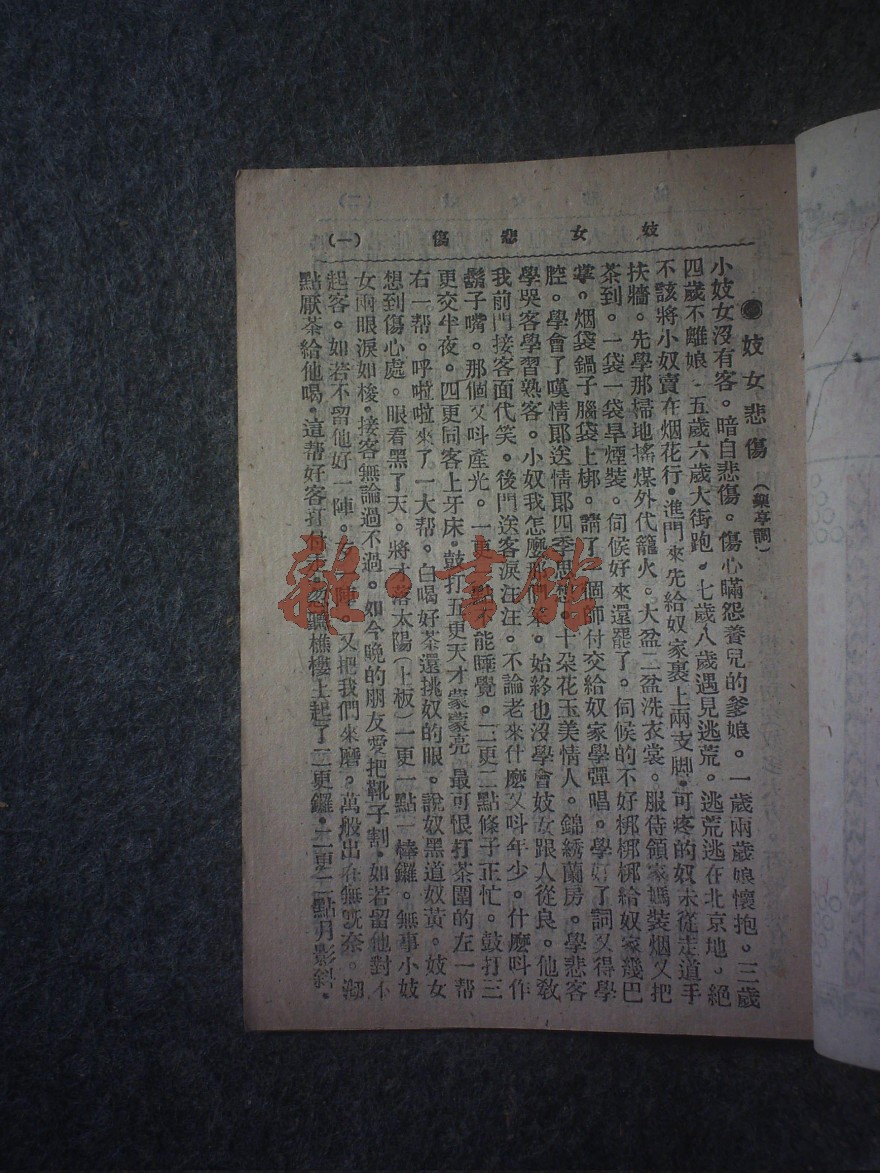 妓女悲傷 (一)
●妓女悲傷(樂亭調)
小妓女沒有客。暗自悲傷。傷心瞞怨養兒的爹娘。一歲兩歲娘懷抱。三歲
四歲不離娘。五歲六歲大街跑。七歲八歲遇見逃荒。逃荒逃在北京地。絕
不該將小奴賣在烟花行。進門來先給奴家裹上兩支脚。可疼的奴未從走道手
扶牆。先學那掃地搖煤外代籠火。大盆二盆洗衣裳。服侍領家媽裝烟又把
茶到。一袋一袋旱煙裝。伺候好來還罷了。伺候的不好梆梆梆給奴家幾巴
掌。烟袋鍋子腦袋上梆。請了一個師付交給奴家學彈唱。學好了詞又得學
腔。學會了嘆情郎送情郎四季思想。十朵花玉美情人。錦綉蘭房。學悲客
學哭客學習熟客。小奴我怎麼那們笨。始終也沒學會妓女跟人從良。他敎
我前門接客面代笑。後門送客淚汪汪。不論老來什麽又呌年少。什麽呌作
鬍子嘴。那個又呌產光。一更一點不能睡覺。二更二點條子正忙。鼓打三
更交半夜。四更同客上牙床。鼓打五更天才蒙蒙亮。最可恨打茶圍的左一帮
右一帮。呼啦啦來了一大帮。白喝好茶還挑奴的眼。說奴黑道奴黃。妓女
想到傷心處。眼看黑了天。將才落太陽(上板)一更一點一棒鑼。無事小妓
女兩眼淚如梭。接客無論過不過。如今晚的朋友愛把靴子割。如若留他對不
起客。如若不留他好一陣。歹一陣。又把我們來磨。萬般出在無耐奈。沏
點厭茶給他喝。這帮好客打付走。忽聽樵樓上起了二更鑼。二更二點月影斜。
雜·書館